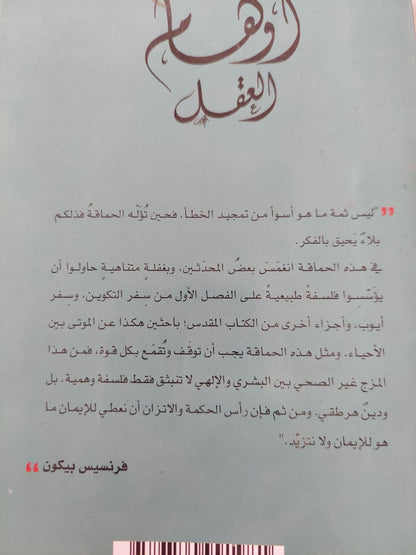 أوهام
العقل
"ليس ثمة ما هو أسوأ من تمجيد الخطأ. فحين تُؤلّه الحماقةُ فذلكم
بلاءٌ يَحيق بالفكر.
في هذه الحماقة انغمَسَ بعضُ المحدَثين، وبغفلةٍ متناهية حاولوا أن
يؤسّسوا فلسفةً طبيعيةً على الفصل الأول من سِفر التكوين، وسِفر
أيوب، وأجزاء أخرى من الكتاب المقدس؛ باحثين هكذا عن الموتى بين
الأحياء. ومثل هذه الحماقة يجب أن توقَف وتُقمَع بكل قوة، فمن هذا
المزج غير الصحي بين البشري والإلهي لا تنبثق فقط فلسفة وهمية، بل
ودينٌ هرطقي. ومن ثم فإن رأس الحكمة والاتزان أن نعطي للإيمان ما
هو للإيمان ولا نتزيّد."
فرنسيس بيكون